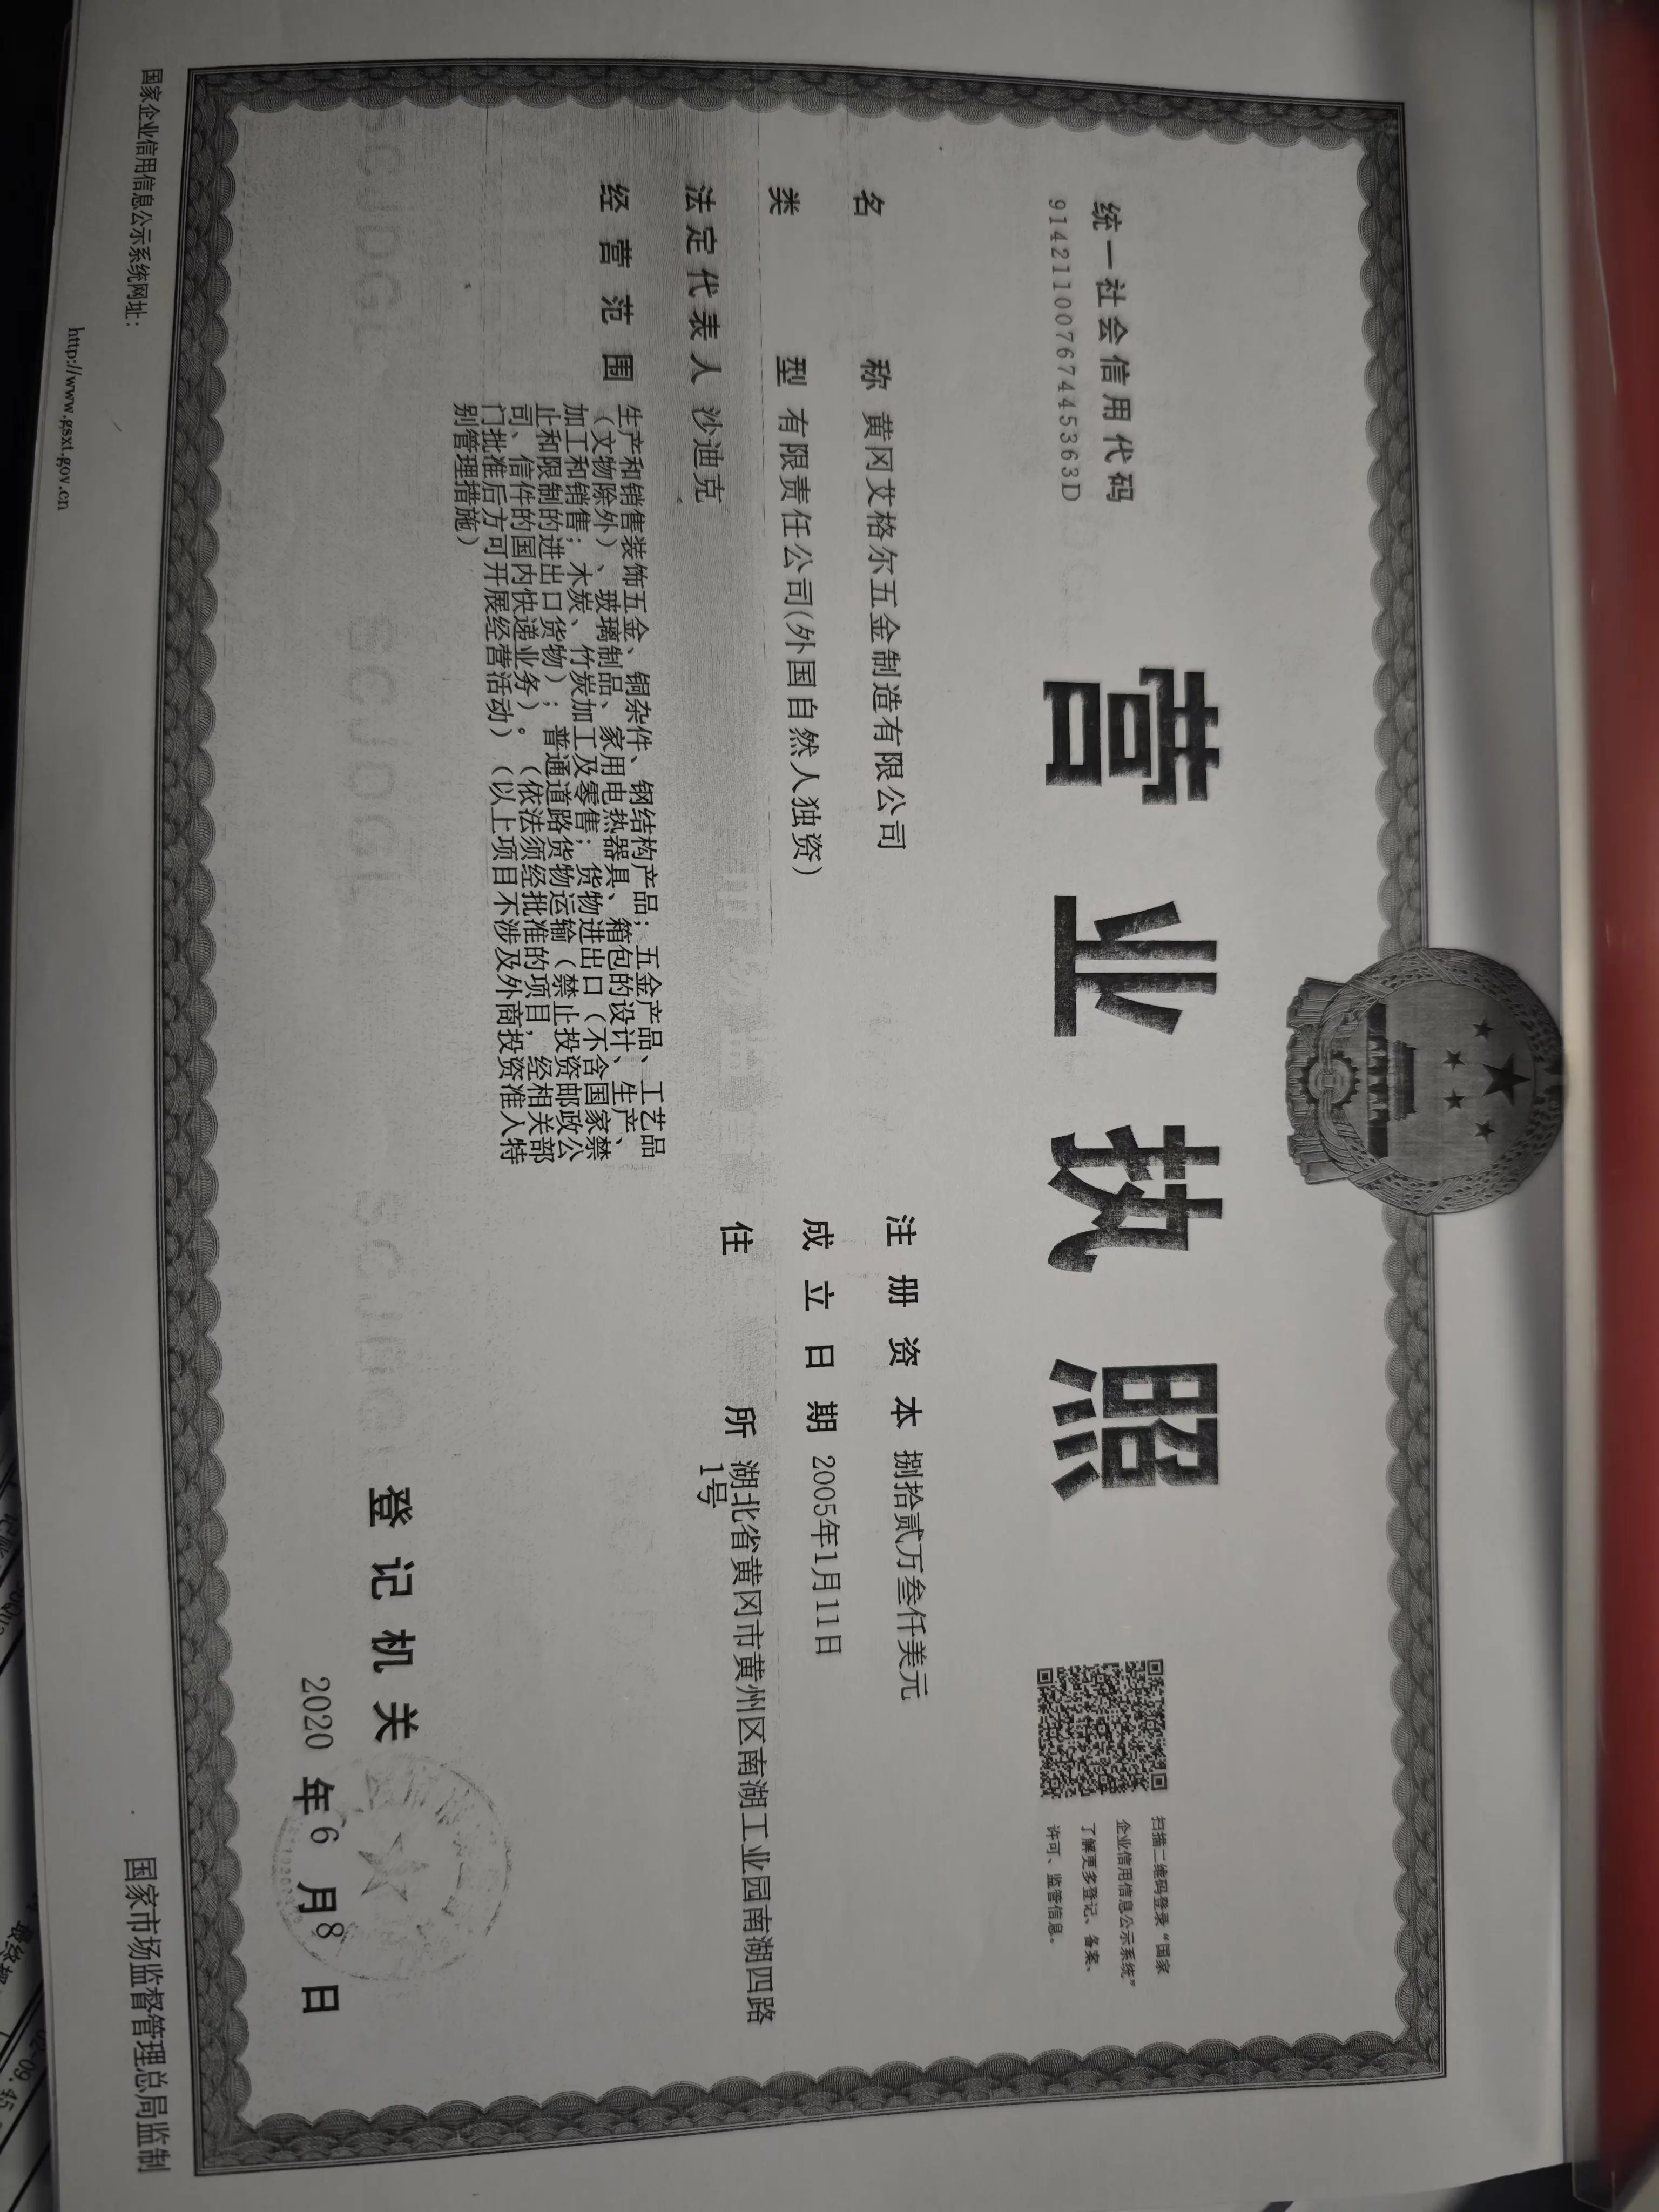 营业执照
统一社会信用代码
91421100767445363D
扫描二维码登录“国家
企业信用信息公示系统”
了解更多登记、备案、
许可、监管信息。
名称 黄冈艾格尔五金制造有限公司
类型 有限责任公司(外国自然人独资)
法定代表人 沙迪克
经营范围 生产和销售装饰五金、铜杂件、钢结构产品；五金产品、工艺品
（文物除外）、玻璃制品、家用电热器具、箱包的设计、生产、
加工和销售；木炭、竹炭加工及零售；货物进出口（不含国家禁
止和限制的进出口货物）；普通道路货物运输（禁止投资邮政公
司、信件的国内快递业务）。（依法须经批准的项目，经相关部
门批准后方可开展经营活动）（以上项目不涉及外商投资准入特
别管理措施）
注册资本 捌拾贰万叁仟美元
成立日期 2005年1月11日
住所 湖北省黄冈市黄州区南湖工业园南湖四路
1号
登记机关
2020年6月8日
国家企业信用信息公示系统网址：
http://www.gsxt.gov.cn
国家市场监督管理总局监制